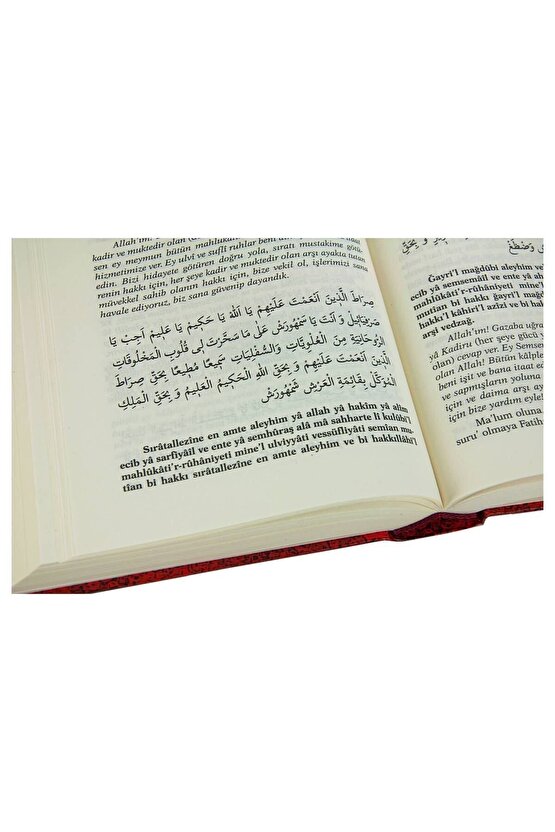 Allah'im!
kadir ve muktedir olan
sen ey meymun bütün mahlukan
hizmetimize ver. Ey ulvî ve suflî ruhlar beni
edin. Bizi hidayete götüren doğru yola, sıratı mustakime götü-
renin hakkı için, her şeye kadir ve muktedir olan arşı ayakta tutan
müvekkel sahib olanın hakkı için, bize vekil ol, işlerimizi sana
havale ediyoruz, biz sana güvenip dayandık.
صِرَاطَ الَّذِينَ اَنْعَمْتَ عَلَيْهِمْ يَا اَللّٰهُ يَا حَكِيمُ يَا عَلِيمُ اَجِبْ يَا
صَرْفَيَائِيلُ وَ اَنْتَ يَا سَمْهُورَشْ عَلٰى مَا سَخَّرْتَ لِى قُلُوبَ الْمَخْلُوقَاتِ
الرُّوحَانِيَّةِ مِنَ الْعُلْوِيَّاتِ وَالسُّفْلِيَّاتِ سَمِيعًا مُطِيعًا بِحَقِّ صِرَاطَ
الَّذِينَ اَنْعَمْتَ عَلَيْهِمْ وَ بِحَقِّ اللّٰهِ الْحَكِيمِ الْعَلِيمِ وَ بِحَقِّ الْمَلِكِ
الْمُوَكَّلِ بِقَائِمَةِ الْعَرْشِ شَمْهُورَشْ
Sırâtallezîne en amte aleyhim yâ allah yâ hakîm yâ alîm
ecib yâ sarfiyâîl ve ente yâ semhûraş alâ mâ sahharte lî kulûbi'l
mahlûkâti'r-rûhâniyeti mine'l ulviyyâti vessüfliyâti semîan mu-
tîan bi hakkı sırâtallezîne en amte aleyhim ve bi hakkıllâhi'l
Ğayri'l mağdûbi aleyhim ve
ecib yâ semsemâîl ve ente yâ
mahlûkâti'r-rûhâniyeti mine'l
mutîan bi hakkı ğayri'l
hakkı'l kâhiri'l azîzi ve bi hak
arşı vedzağ.
Allah'ım! Gazaba uğra
yâ Kadiru (her şeye gücü y
olan) cevap ver. Ey Semse
olan Allah! Bütün kâlple
beni işit ve bana itaat ed
ve sapmışların yoluna
için ve daima arşı ay
için bize yardım eyle!
Ma'lum oluna,
suru' olmaya Fatih